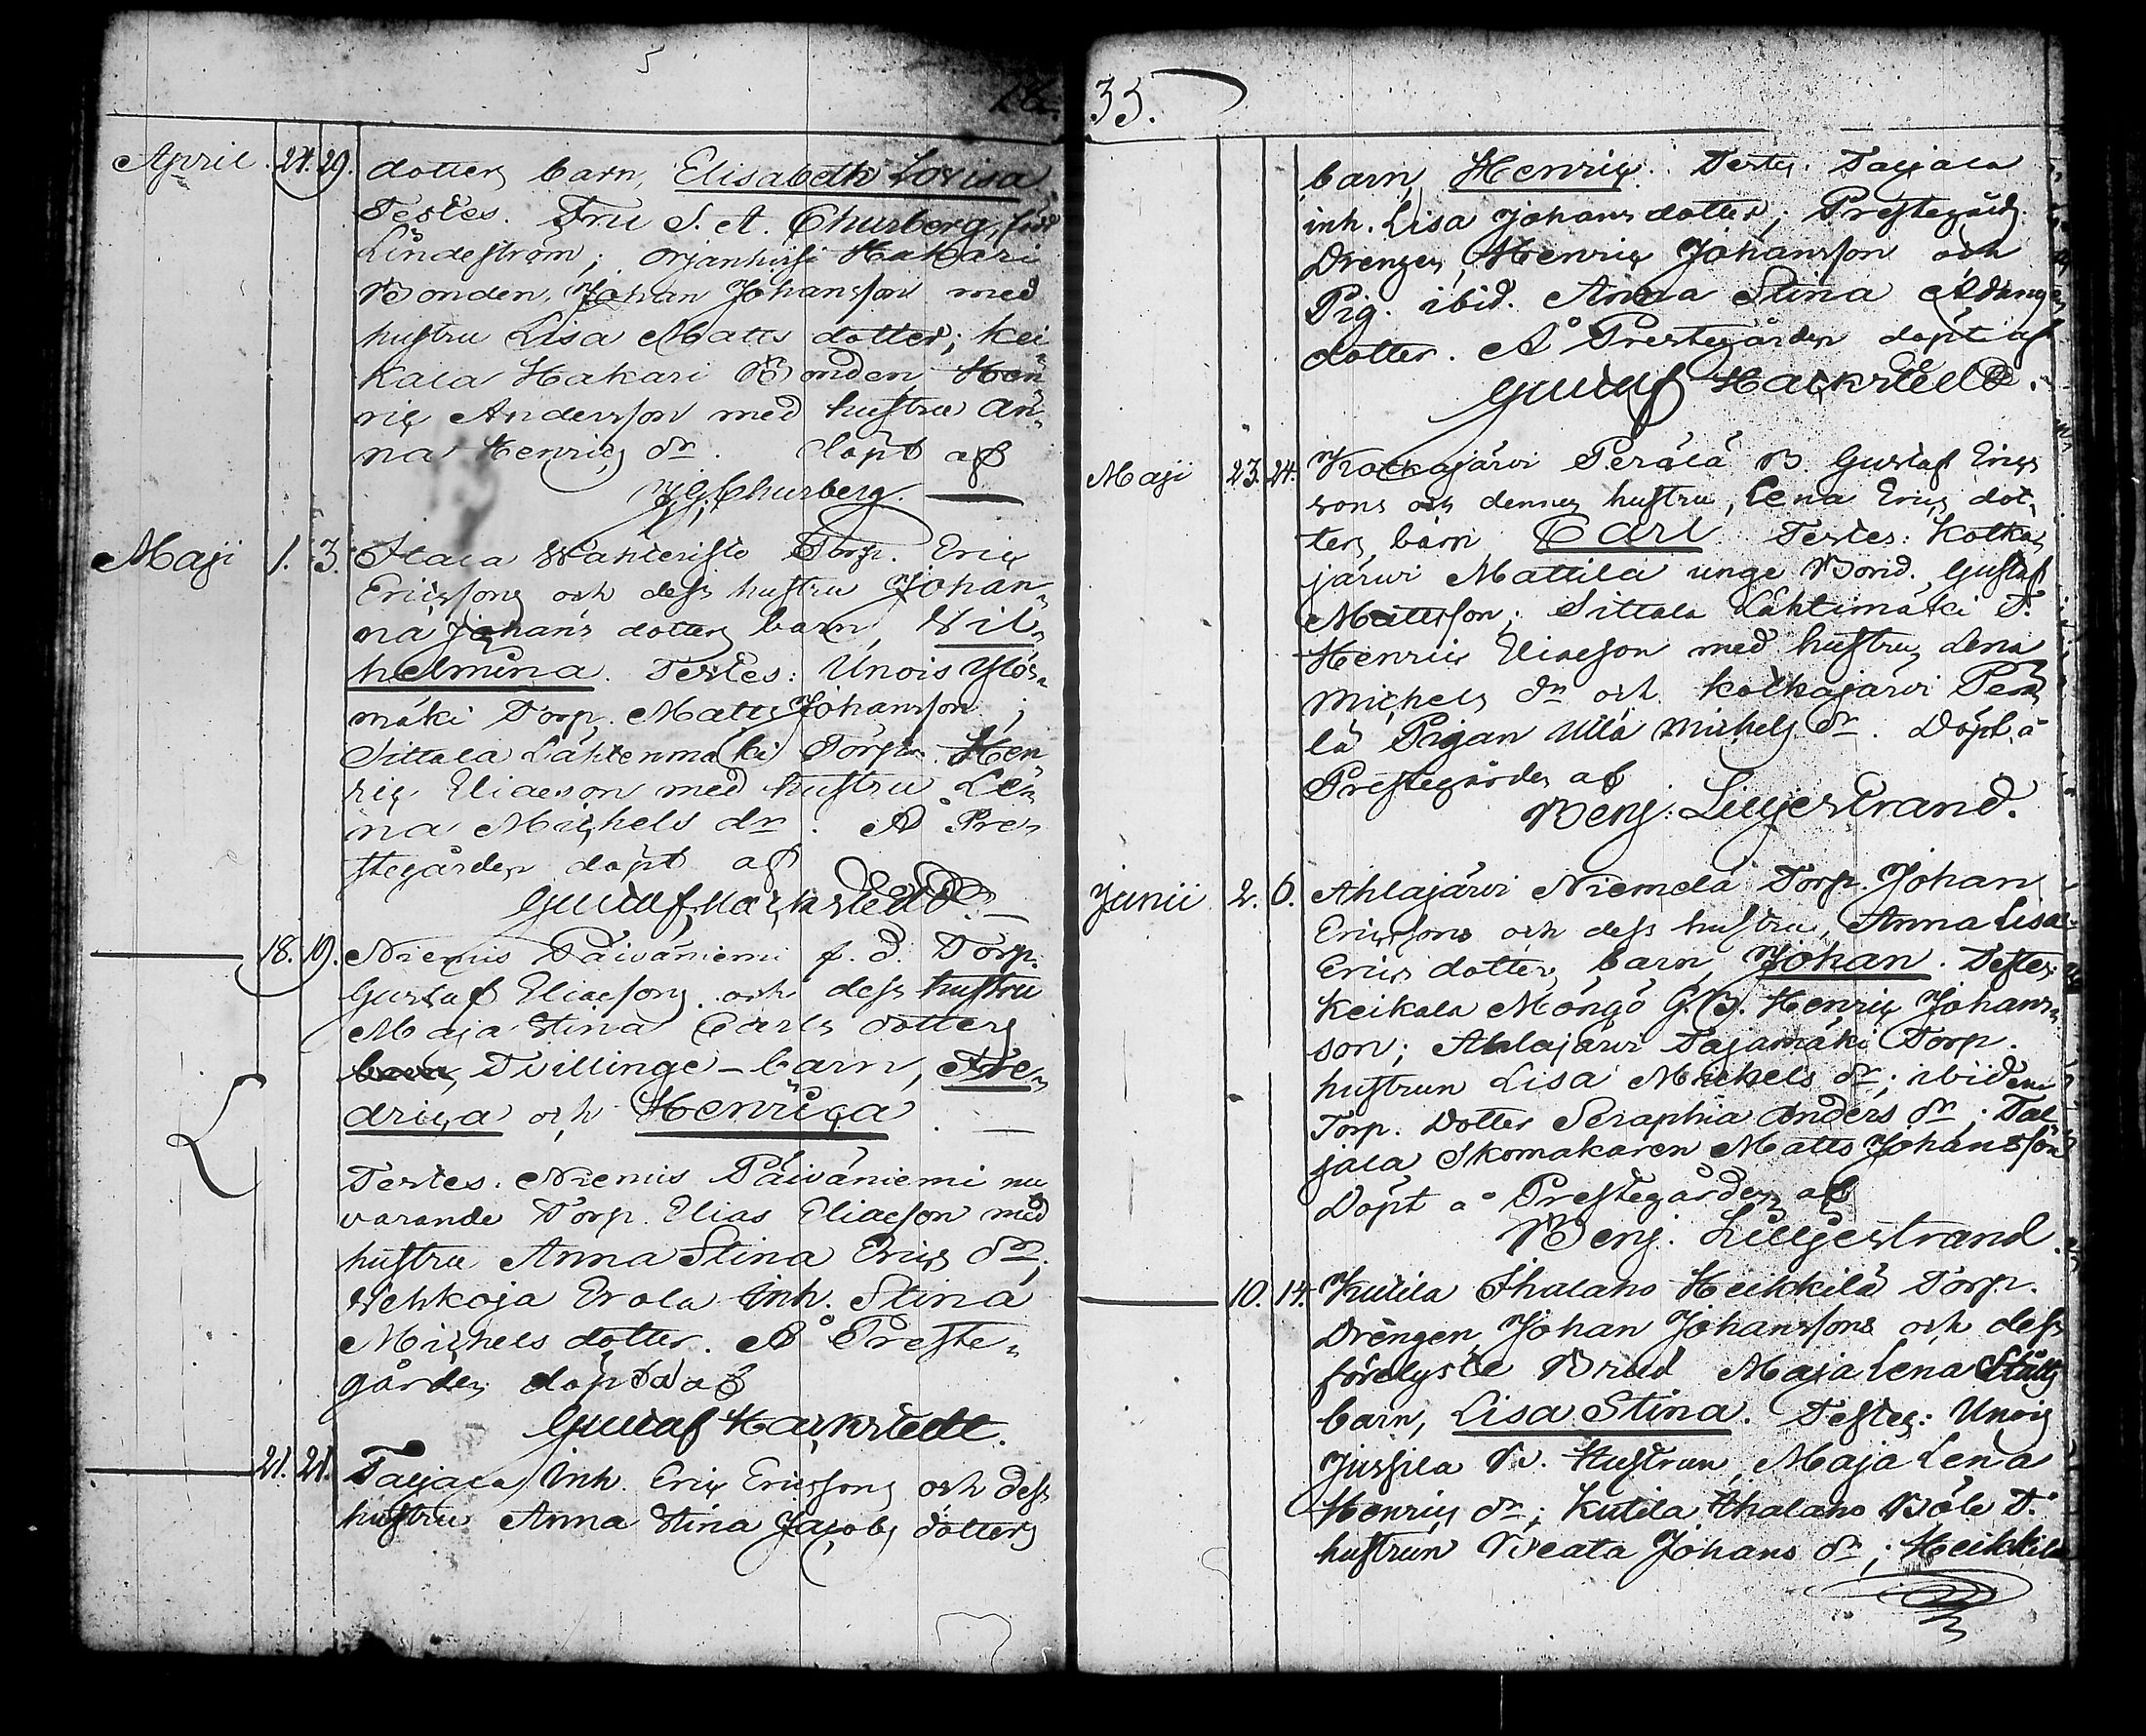 35.
April. 27. 29. dotters barn, Elisabeth Lovisa
Testes. Fru S. A. Churberg, född
Lindeström; Orjanhirsi Hakari
Bonden, Johan Johansson med
hustru Lisa Matts dotter; Kei-
kala Hakari Bonden Hen-
ric Andersson med hustru An-
na Henrics dr. döpt af
J. G. Churberg.
Maji 1. 3. Itala Wahteristo Torp. Eric
Ericssons och dess hustru Johan-
na Johans dotters barn, Wil-
helmina. Testes: Unois Ylös-
mäki Torp. Matts Johansson;
Sittala Lähtenmäki Torp. Hen-
ric Eliaeson med hustru Le-
na Michels dr. Å Pre-
stegården döpt af
Gustaf Hackstedt.
18. 19. Niemis Päiväniemi f. d. Torp.
Gustaf Eliaesons och dess hustru
Maja Stina Carls dotters
barn, Tvillinge-barn, Fre-
drica och Henrica.
Testes. Niemis Päiväniemi nu
varande Torp. Elias Eliaeson med
hustru Anna Stina Erics dr;
Wehkoja Erola Inh. Stina
Michels dotter. Å Preste-
gården döpta af
Gustaf Hackstedt.
21. 21. Taljala Inh. Eric Ericssons och dess
hustru Anna Stina Jacobs dotters
barn, Henric. Testes. Taljala
inh. Lisa Johans dotter; Prestegårds
Drengen Henric Johansson och
Pig. ibid. Anna Stina Adams
dotter. Å Prestegården döpt af
Gustaf Hackstedt.
Maji 23. 24. Kolkajärvi Perälä B. Gustaf Erics
sons och dennes hustru, Lena Erics dot-
ters, barn Carl Testes: Kolka-
järvi Mattila unge Bond. Gustaf
Mattsson; Sittala Lähtimäki T.
Henric Eliaeson med hustru Lena
Michels dr och Kolkajärvi Perä
lä Pigan Ulla Michels dr. Döpt å
Prestegården af
Benj. Liljestrand.
Junii 2. 6. Ahlajärvi Niemelä Torp. Johan
Ericssons och dess hustru, Anna Lisa
Erics dotters, barn Johan. Testes:
Keikala Möngö G. B. Henric Johans-
son; Ahlajärvi Tajamäki Torp.
hustrun Lisa Michels dr; ibidem
Torp. Dotter Seraphia Anders dr; Tal-
jala Skomakaren Matts Johansson
Döpt å Prestegården af
Benj. Liljestrand.
10. 14. Kutila Ihalahs Heikkilä Torp.
Drengen Johan Johanssons och dess
förelyste Brud Maja Lena
barn, Lisa Stina. Testes: Unois
Jussila B. Hustrun, Maja Lena
Henrics dr; Kutila Ihalahs Böle T.
hustrun Beata Johans dr; Heikkilä